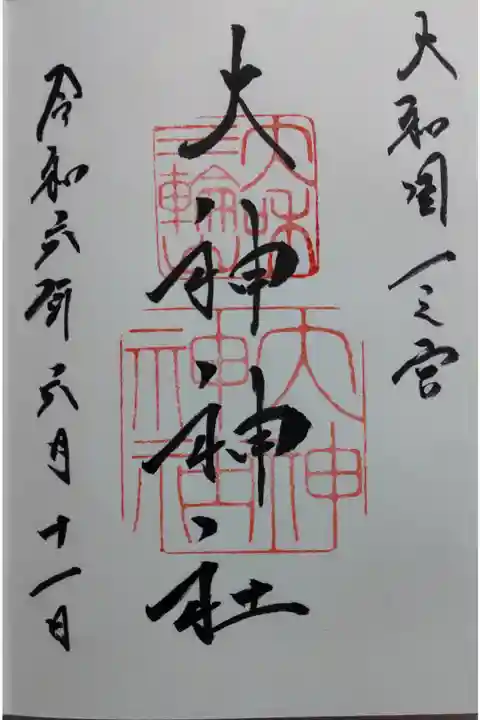 大和国一之宮
大神神社
令和六年六月十一日
大和
三輪山
大神
神社